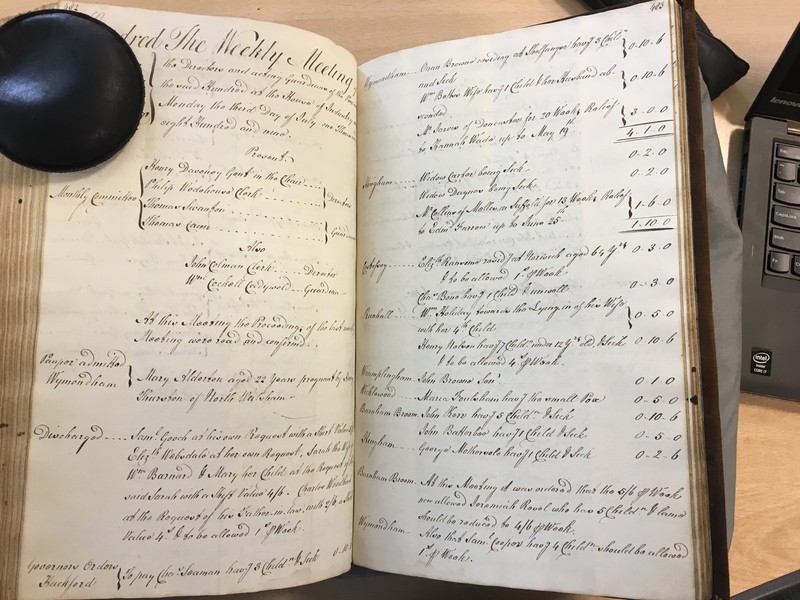 402
dred The Weekly Meeting
the Directors and acting Guardians of the
the said Hundred at the House of Industry
Monday the third Day of July one Thousand
eight Hundred and nine.
Present,
Monthly Committee
Henry Daveney Gent in the Chair
Philip Wodehouse Clerk
Directors
Thomas Swanton
Thomas Cann
Guardians
Also
John Colman Clerk Director
Wm Cockell Guardian
At this Meeting the Proceedings of the last
Meeting were read and confirmed.
Pauper admitted
Wymondham
Mary Alderton aged 22 Years pregnant by
Thurston of North Walsham
Discharged Saml Gooch at his own Request with a Shirt Value
Elizth Hubsdale at her own Request, Sarah the Wife
Wm Barnard & Mary her Child at the Request of
said Sarah with a Shift Value 4/6. Charles
at the Request of his Father in law, with 2/6 a
Value 4s & to be allowed 1s ℔ Week.
Governors Orders
Hackford
To pay Chas Seaman havg 3 Childn & Sick 0-10-
403
Wymondham Owen Browne residing at havg 3 Childn
and Sick 0-10-6
Wm Wife havg 1 Child & her Husband ab-
sconded 0-10-6
Mr of Doncaster for 20 Weeks Relief
to Hannah Wade up to May 19th 3-0-0
4-1-0
Hingham Widow Carter being Sick 0-2-0
Widow Daynes being Sick 0-2-0
Mr Collins of in Suffolk for 13 Weeks Relief
to Edmd Farrow up to June 25th 1-6-0
1-10-0
Costessy Elizth Ransome resids at Norwich aged 64 Yrs 0-3-0
& to be allowed 1s ℔ Week
Chas Bone havg 1 Child & unwell 0-3-0
Runhall Wm Holiday towards the Lying in of his Wife
with her 4th Child 0-5-0
Henry Nelson havg 7 Childn under 12 Yrs old, & Sick 0-10-6
& to be allowed 4s ℔ Week.
Wramplingham John Browne Senr 0-1-0
Wicklewood Maria Foulsham havg the small Pox 0-5-0
Barnham Broom John Kerr havg 5 Childn & Sick 0-10-6
John Batterbee havg 1 Child & Sick 0-5-0
Hingham George Mothersole havg 1 Child & Sick 0-2-6
Barnham Broom At this Meeting it was ordered that the 5/6 ℔ Week
now allowed Jeremiah Royal who has 5 Childn & lame
should be reduced to 4/6 ℔ Week.
Wymondham Also that Saml Cooper havg 4 Childn should be allowed
1s ℔ Week.
lenovo
CapsLock
Shift
Fn
Ctrl
intel
CORE i7